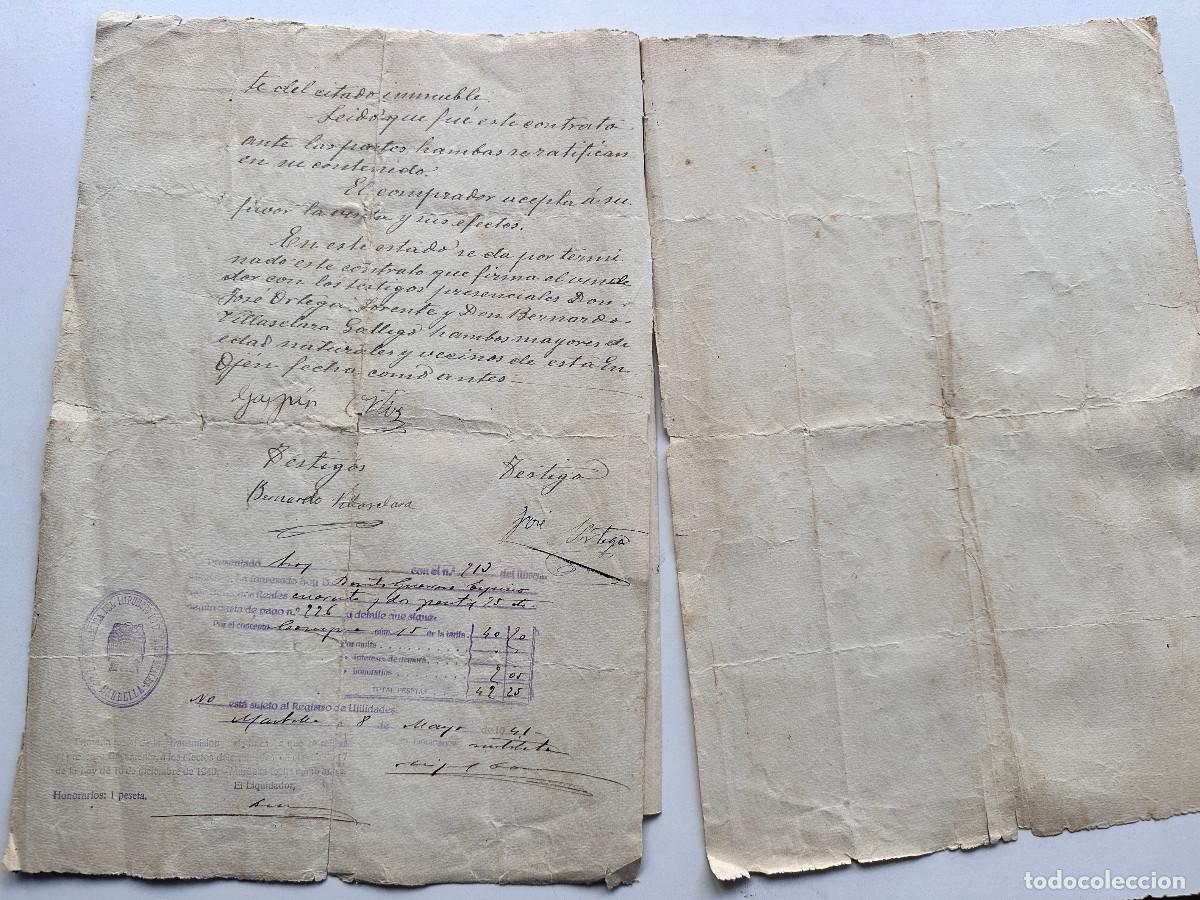 te del citado inmueble.
Leido que fué este contrato
ante las partes hambas se ratifican
en su contenido.
El comprador acepta á su
favor la venta y sus efectos.
En este estado se da por termi
nado este contrato que firma el vende
dor con los testigos presenciales Don
José Ortega Lorente y Don Bernardo
Villasclara Gallego hambos mayores de
edad naturales y vecinos de esta En
Ojén fecha como antes
Gaspár
Testigos
Testigo
Bernardo Villasclara
José Ortega
Presentado hoy con el n.º 913 del libro
Ha ingresado hoy D.
Reales cuarenta y dos 25
carta de pago n.º 226 a detalle que sigue:
Por el concepto núm. 15 de la tarifa 40 20
Por multa
» intereses de demora
» honorarios 2 05
TOTAL PESETAS 42 25
No está sujeto al Registro de Utilidades
Marbella a 8 de Mayo de 1941
de la Ley de 16 de diciembre de 1940.
El Liquidador,
Honorarios: 1 peseta.
MARBELLA
todocoleccion